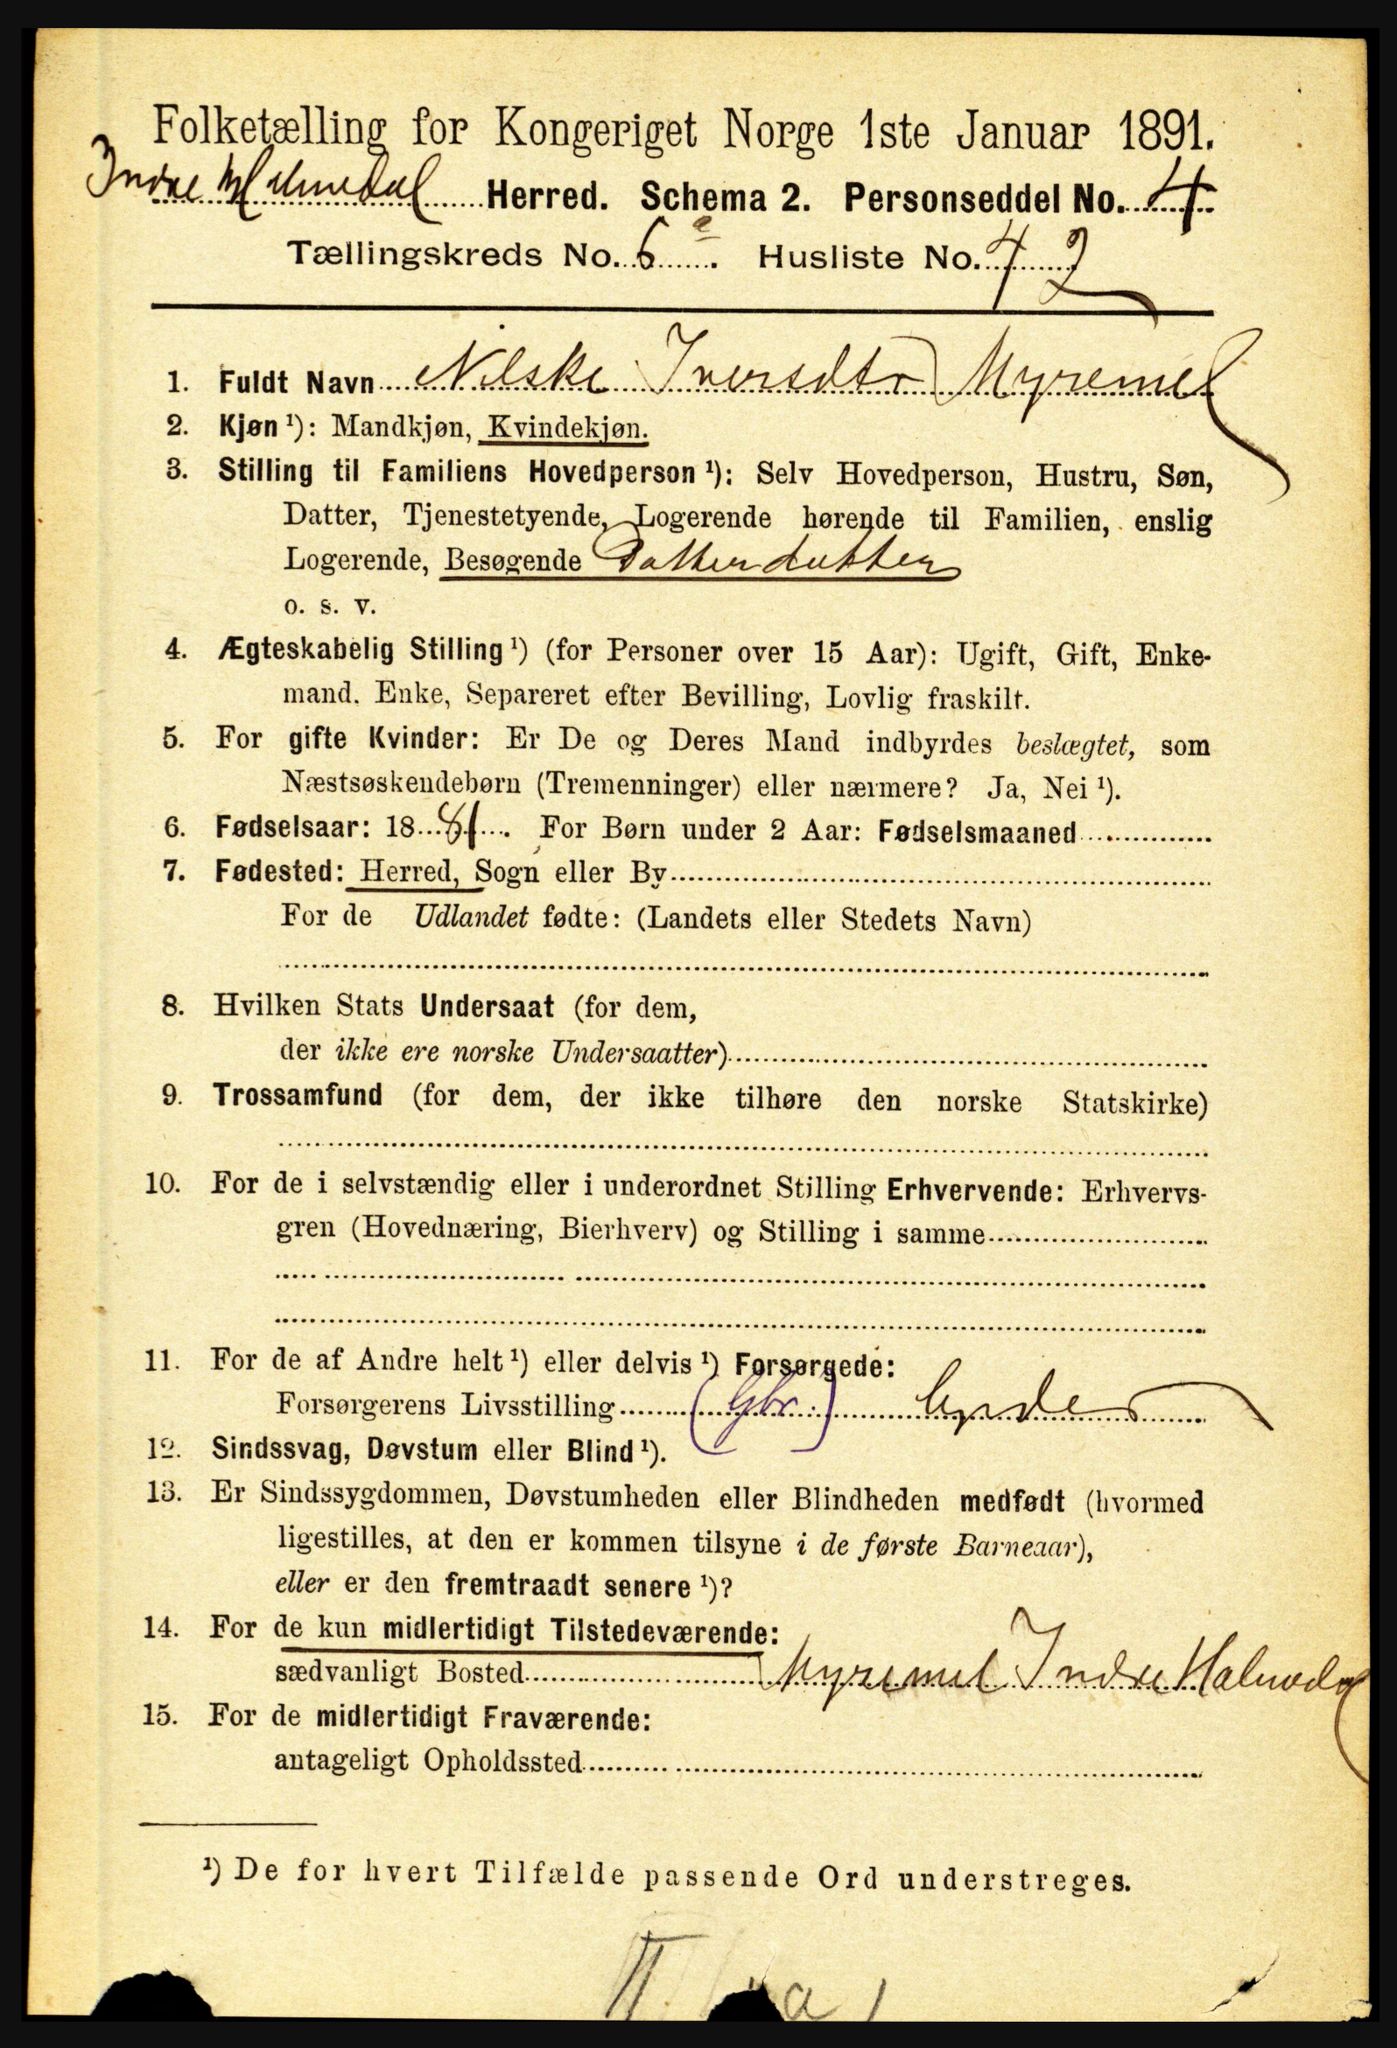 Folketælling for Kongeriget Norge 1ste Januar 1891.
Indre Holmedal Herred. Schema 2. Personseddel No. 4
Tællingskreds No. 6 a. Husliste No. 42
1. Fuldt Navn Nilske Iversdtr Myremel
2. Kjøn ¹): Mandkjøn, Kvindekjøn.
3. Stilling til Familiens Hovedperson ¹): Selv Hovedperson, Hustru, Søn,
Datter, Tjenestetyende, Logerende hørende til Familien, enslig
Logerende, Besøgende Datterdatter
o. s. v.
4. Ægteskabelig Stilling ¹) (for Personer over 15 Aar): Ugift, Gift, Enke-
mand. Enke, Separeret efter Bevilling, Lovlig fraskilt.
5. For gifte Kvinder: Er De og Deres Mand indbyrdes beslægtet, som
Næstsøskendebørn (Tremenninger) eller nærmere? Ja, Nei ¹).
6. Fødselsaar: 1881. For Børn under 2 Aar: Fødselsmaaned
7. Fødested: Herred, Sogn eller By
For de Udlandet fødte: (Landets eller Stedets Navn)
8. Hvilken Stats Undersaat (for dem,
der ikke ere norske Undersaatter)
9. Trossamfund (for dem, der ikke tilhøre den norske Statskirke)
10. For de i selvstændig eller i underordnet Stilling Erhvervende: Erhvervs-
gren (Hovednæring, Bierhverv) og Stilling i samme
11. For de af Andre helt ¹) eller delvis ¹) Forsørgede:
Forsørgerens Livsstilling (Gbr.)
12. Sindssvag, Døvstum eller Blind ¹).
13. Er Sindssygdommen, Døvstumheden eller Blindheden medfødt (hvormed
ligestilles, at den er kommen tilsyne i de første Barneaar),
eller er den fremtraadt senere ¹)?
14. For de kun midlertidigt Tilstedeværende:
sædvanligt Bosted Myremel Indre Holmedal
15. For de midlertidigt Fraværende:
antageligt Opholdssted
¹) De for hvert Tilfælde passende Ord understreges.